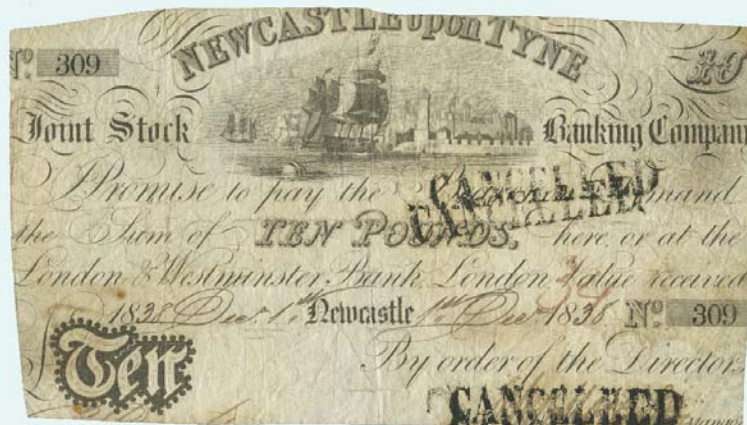 NEWCASTLE upon TYNE
No 309 10
Joint Stock Banking Company
I Promise to pay the Bearer on Demand
CANCELLED
CANCELLED
the Sum of TEN POUNDS, here or at the
London & Westminster Bank London Value received
1838 Decr. 1st Newcastle 1st Decr 1838 No 309
By order of the Directors
Ten
CANCELLED